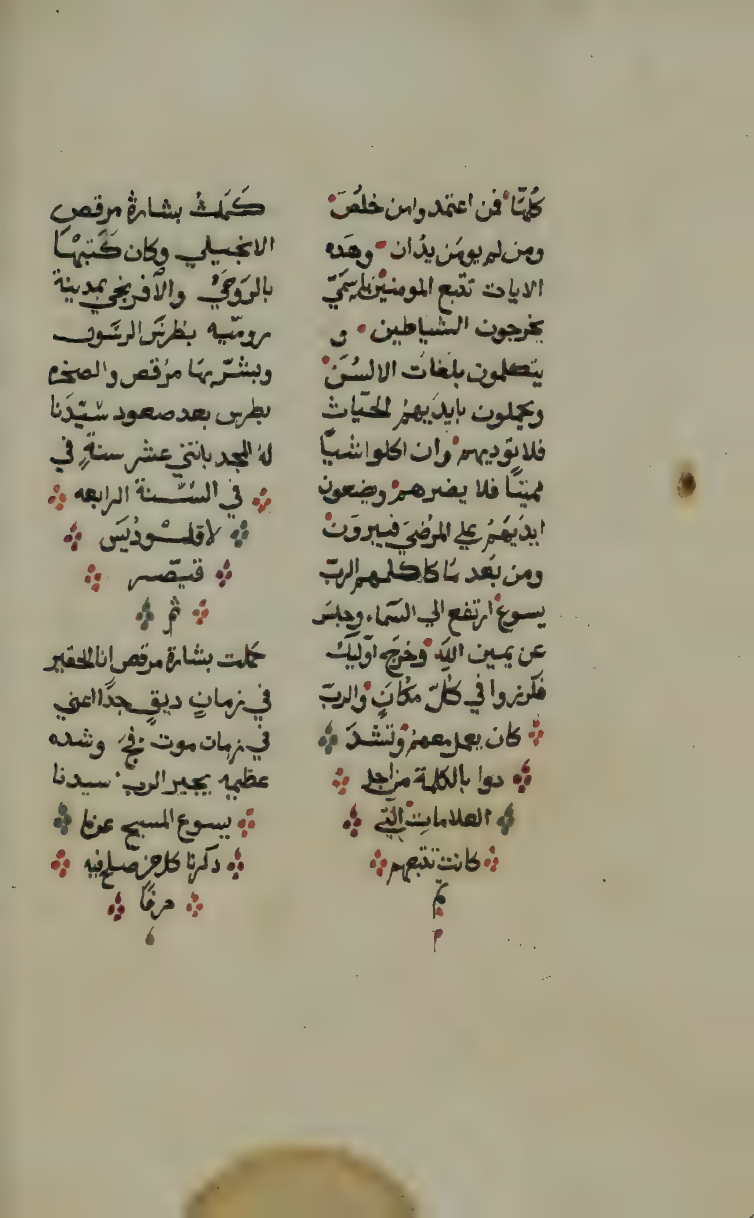 كلها فمن اعتمد وامن خلص
ومن لم يومن يدان وهده
الايات تتبع المومنين باسمي
يخرجون الشياطين و
يتكلمون بلغات الالسن
ويحملون بايديهم الحيات
فلا توديهم وان اكلوا شيا
مميتا فلا يضرهم ويضعون
ايديهم علي المرضي فيبرون
ومن بعد ما كلمهم الرب
يسوع ارتفع الي السماء وجلس
عن يمين الله وخرج اوليك
فكرزوا في كل مكان والرب
كان يعمل معهم وتشد
دوا بالكلمة من اجل
العلامات التي
كانت تتبعهم
تم
كملت بشارة مرقص
الانجيلي وكان كتبها
بالرومي والافرنجي بمدينة
روميه بطرس الرسول
وبشر بها مرقص والصخره
بطرس بعد صعود سيدنا
له المجد باثني عشر سنة في
في السنة الرابعه
لاقلوديس
قيصر
تم
كملت بشارة مرقص انا الحقير
في زمان ديق جدا اعني
في زمان موت وشده
عظيمه يجير الرب سيدنا
يسوع المسيح عن
دكرنا كل من صلح فيه
حرفا